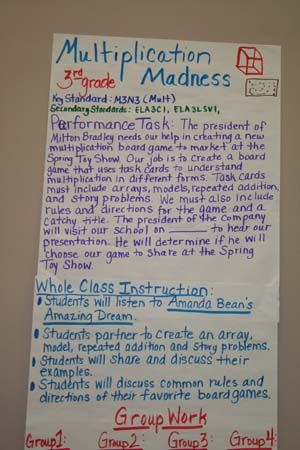 Multiplication
Madness
3rd grade
Key Standard: M3N3 (Mult)
Secondary Standards: ELA3C1, ELA3LSV1,
Performance Task: The president of
Milton Bradley needs our help in creating a new
multiplication board game to market at the
Spring Toy Show. Our job is to create a board
game that uses task cards to understand
multiplication in different forms. Task cards
must include arrays, models, repeated addition,
and story problems. We must also include
rules and directions for the game and a
catchy title. The president of the company
will visit our school on ______ to hear our
presentation. He will determine if he will
choose our game to share at the Spring
Toy Show.
Whole Class Instruction:
• Students will listen to Amanda Bean's
Amazing Dream.
• Students partner to create an array,
model, repeated addition and story problems.
• Students will share and discuss their
examples.
• Students will discuss common rules and
directions of their favorite board games.
Group Work
Group 1: Group 2: Group 3: Group 4: